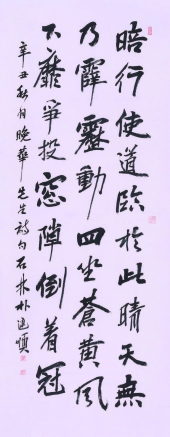 暗行使道臨於此晴天無
乃霹靂動四坐蒼黃風
廳爭投窓陣倒着冠
辛丑秋月晚華先生詩句石林朴